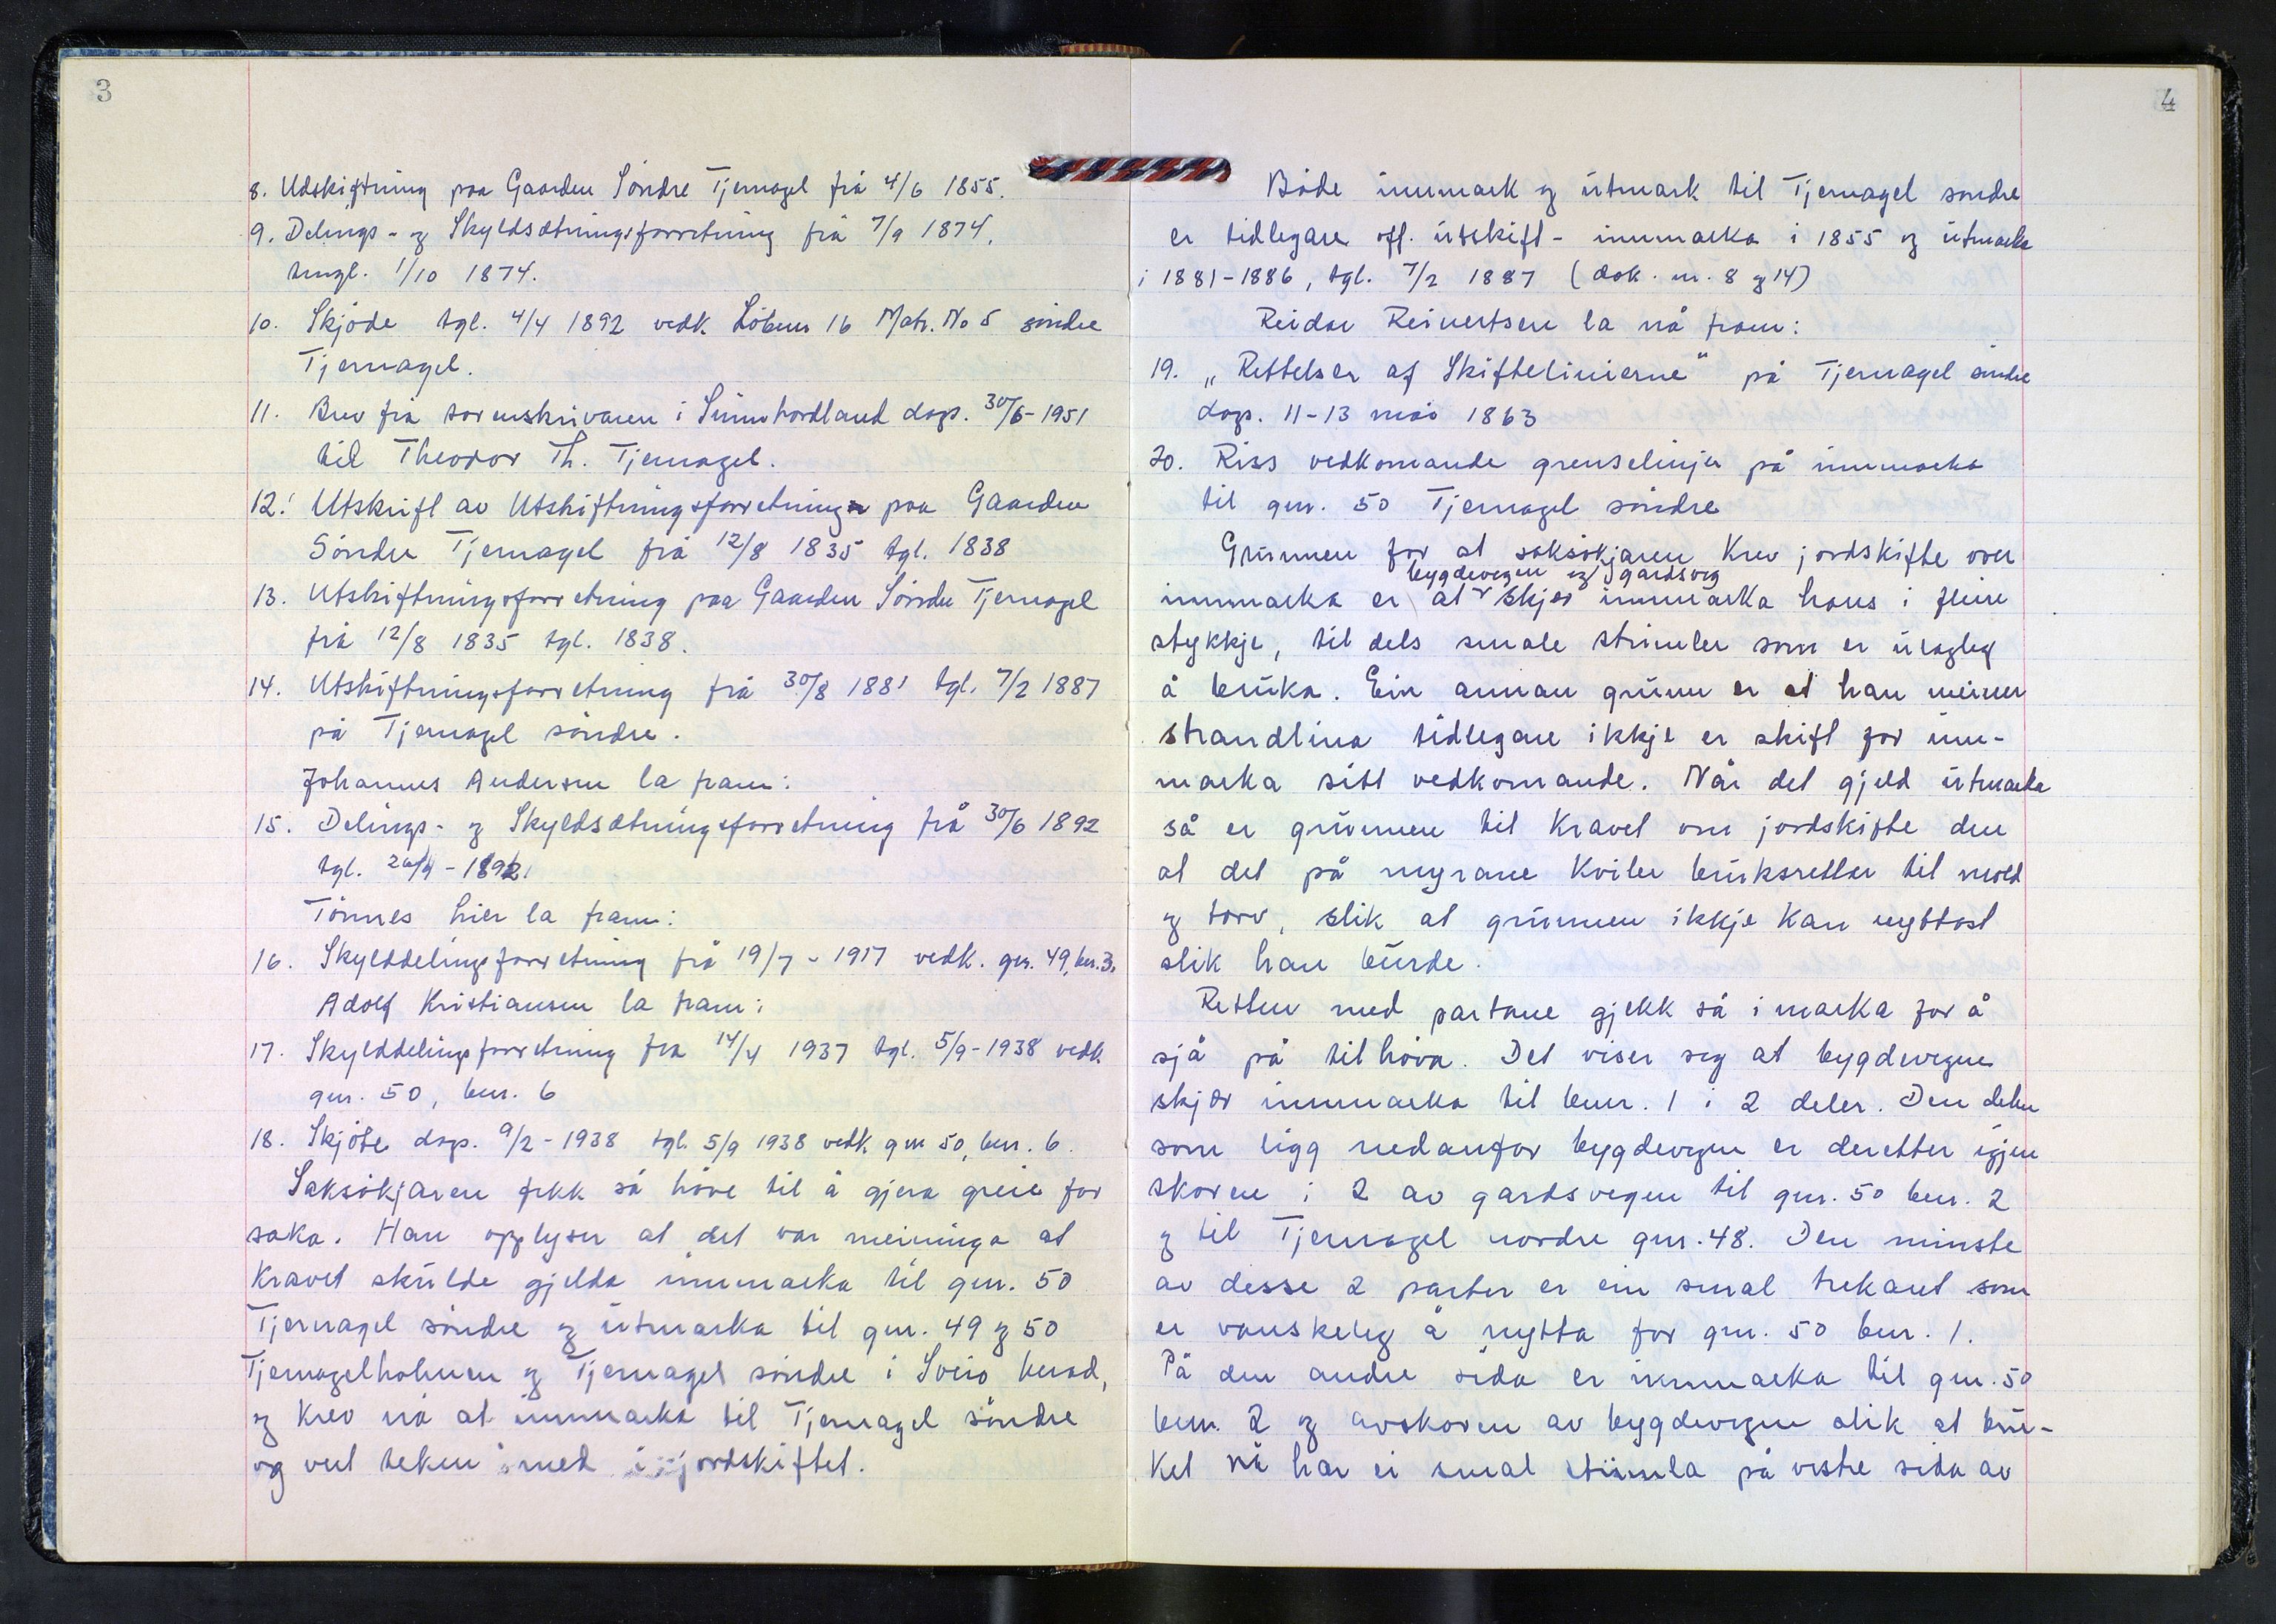 3
8. Udskiftning paa Gaarden Söndre Tjernagel frå 4/6 1855.
9. Delings- og Skyldsætningsforretning frå 7/9 1874,
tingl. 1/10 1874.
10. Skjöde tgl. 4/4 1892 vedk. Löbenr 16 Matr. No 5 söndre
Tjernagel.
11. Brev frå sorenskrivaren i Sunnhordland dags. 30/6-1951
til Theodor Th. Tjernagel.
12. Utskrift av Utskiftningsforretning paa Gaarden
Söndre Tjernagel frå 12/8 1835 tgl. 1838
13. Utskiftningsforretning paa Gaarden Söndre Tjernagel
frå 12/8 1835 tgl. 1838.
14. Utskiftningsforretning frå 30/8 1881 tgl. 7/2 1887
på Tjernagel söndre.
Johannes Andersen la fram:
15. Delings- og Skyldsætningsforretning frå 30/6 1892
tgl. - 1892.
Tönnes Lier la fram:
16. Skylddelingsforretning frå 19/7 - 1917 vedk. gnr. 49, bnr. 3.
Adolf Kristiansen la fram:
17. Skylddelingsforretning fra 14/4 1937 tgl. 5/9-1938 vedk.
gnr. 50, bnr. 6
18. Skjöte dags. 9/2-1938 tgl. 5/9 1938 vedk. gnr 50, bnr. 6.
Saksökjaren fekk så höve til å gjera greie for
saka. Han opplyser at det var meininga at
kravet skulde gjelda innmarka til gnr. 50
Tjernagel söndre og utmarka til gnr. 49 og 50
Tjernagelholmen og Tjernagel söndre i Sveio herad,
og krev nå at innmarka til Tjernagel söndre
og vert teken med i jordskiftet.
4
Både innmark og utmark til Tjernagel söndre
er tidlegare off. utskift - innmarka i 1855 og utmarka
i 1881-1886, tgl. 7/2 1887 (dok. nr. 8 og 14)
Reidar Reinertsen la nå fram:
19. „Rettelser af Skiftelinierne" på Tjernagel söndre
dags. 11-13 mai 1863
20. Riss vedkomande grenselinjer på innmarka
til gnr. 50 Tjernagel söndre
Grunnen for at saksökjaren krev jordskifte over
bygdevegen og gardsveg
innmarka er at skjer innmarka hans i fleire
stykkje, til dels smale strimler som er ulagleg
å bruka. Ein annan grunn er at han meiner
strandlina tidlegare ikkje er skift for inn-
marka sitt vedkomande. Når det gjeld utmarka
så er grunnen til kravet om jordskifte den
at det på myrane kviler bruksretter til mold
og torv, slik at grunnen ikkje kan nyttast
slik han burde.
Retten med partane gjekk så i marka for å
sjå på tilhöva. Det viser seg at bygdevegen
skjer innmarka til bnr. 1 i 2 deler. Den delen
som ligg nedanfor bygdevegen er deretter igjen
skoren i 2 av gardsvegen til gnr. 50 bnr. 2
og til Tjernagel nordre gnr. 48. Den minste
av desse 2 parter er ein smal trekant som
er vanskeleg å nytta for gnr. 50 bnr. 1.
På den andre sida er innmarka til gnr. 50
bnr. 2 og avskoren av bygdevegen slik at bru-
ket nå har ei smal strimla på vestre sida av